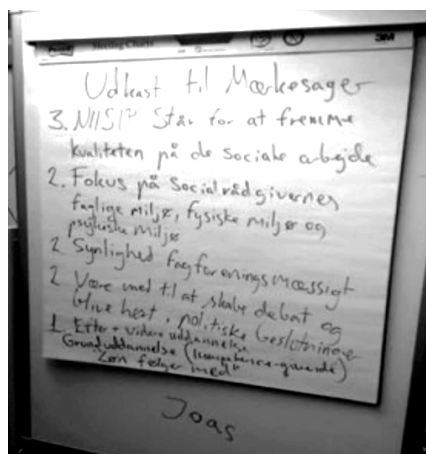 Meeting Charts
3M
Udkast til Mærkesager
3. NIISIP Står for at fremme
kvaliteten på de sociale arbejde
2. Fokus på Socialrådgivernes
faglige miljø, fysiske miljø og
psykiske miljø
2 Synlighed fagforeningsmæssigt
2 Være med til at skabe debat og
blive hørt i politiske beslutninger
1. Efter + videre uddannelse
Grunduddannelse (kompetence-givende)
"Løn følger med"
Joas